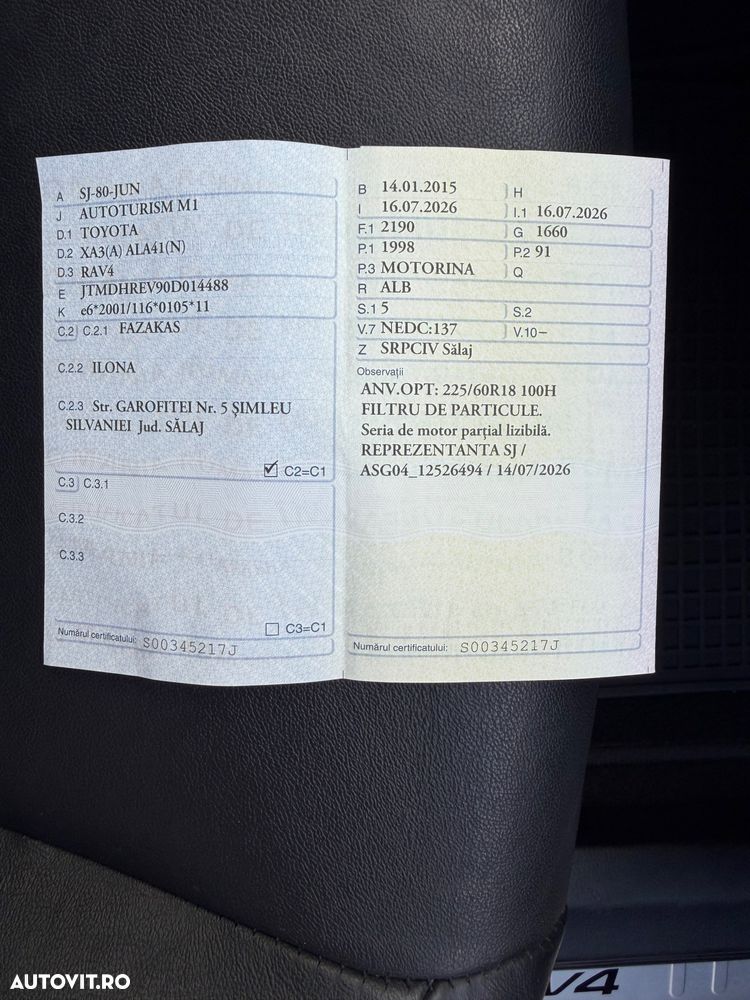 A SJ-80-JUN
J AUTOTURISM M1
D.1 TOYOTA
D.2 XA3(A) ALA41(N)
D.3 RAV4
E JTMDHREV90D014488
K e6*2001/116*0105*11
C.2 C.2.1 FAZAKAS
C.2.2 ILONA
C.2.3 Str. GAROFITEI Nr. 5 ŞIMLEU
SILVANIEI Jud. SĂLAJ
C2=C1
C.3 C.3.1
C.3.2
C.3.3
C3=C1
Numărul certificatului: S00345217J
B 14.01.2015 H
I 16.07.2026 I.1 16.07.2026
F.1 2190 G 1660
P.1 1998 P.2 91
P.3 MOTORINA Q
R ALB
S.1 5 S.2
V.7 NEDC:137 V.10–
Z SRPCIV Sălaj
Observaţii
ANV.OPT: 225/60R18 100H
FILTRU DE PARTICULE.
Seria de motor parţial lizibilă.
REPREZENTANTA SJ /
ASG04_12526494 / 14/07/2026
Numărul certificatului: S00345217J
V4
AUTOVIT.RO